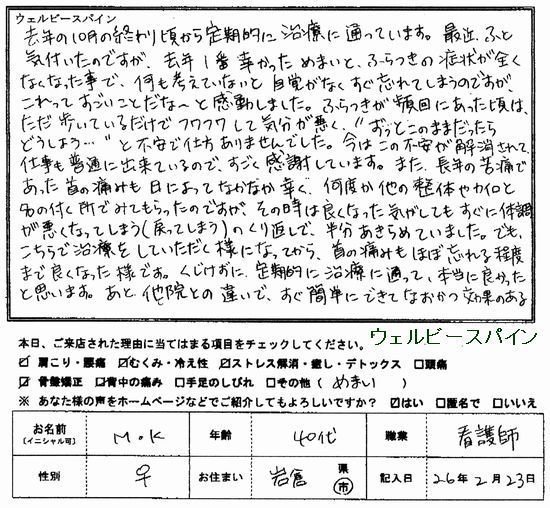 ウェルビースパイン
去年の10月の終わり頃から定期的に治療に通っています。最近、ふと
気付いたのですが、去年1番辛かっためまいと、ふらつきの症状が全く
なくなった事で、何も考えていないと自覚がなくすぐ忘れてしまうのですが、
これってすごいことだな〜と感動しました。ふらつきが頻回にあった頃は、
ただ歩いているだけでフワフワして気分が悪く、"ずっとこのままだったら
どうしよう…"と不安で仕方ありませんでした。今はこの不安が解消されて、
仕事も普通に出来ているので、すごく感謝しています。また、長年の苦痛で
あった首の痛みも日によってなかなか辛く、何度か他の整体やカイロと
名の付く所でみてもらったのですが、その時は良くなった気がしてもすぐに体調
が悪くなってしまう(戻ってしまう)のくり返しで、半分あきらめていました。でも、
こちらで治療をしていただく様になってから、首の痛みもほぼ忘れる程度
まで良くなった様です。くじけずに、定期的に治療に通って、本当に良かった
と思います。あと、他院との違いで、すぐ簡単にできてなおかつ効果のある
ウェルビースパイン
本日、ご来店された理由に当てはまる項目をチェックしてください。
☑ 肩こり・腰痛 ☑むくみ・冷え性 ☑ストレス解消・癒し・デトックス □頭痛
☑ 骨盤矯正 ☑背中の痛み □手足のしびれ □その他 ( めまい )
※ あなた様の声をホームページなどでご紹介してもよろしいですか? ☑はい □匿名で □いいえ
お名前 (イニシャル可) M.K 年齢 40代 職業 看護師
性別 女 お住まい 岩倉 県 市 記入日 26年2月23日